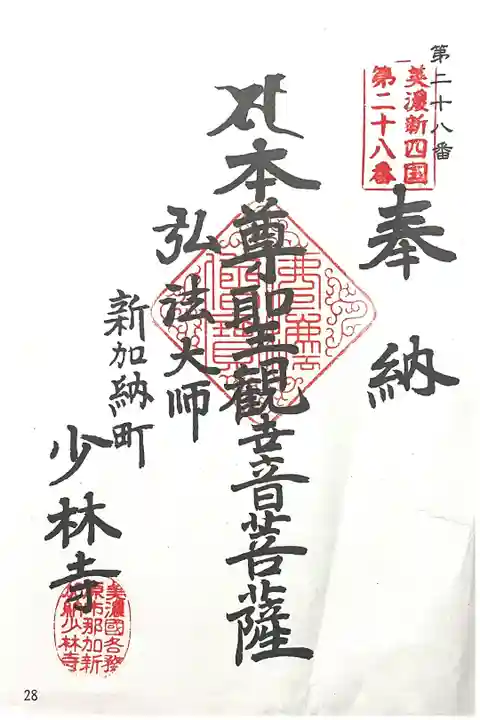 第二十八番
美濃新四国
第二十八番
奉納
本尊聖観世音菩薩
弘法大师
新加納町
少林寺
美濃國各務
原市那加新
少林寺
28